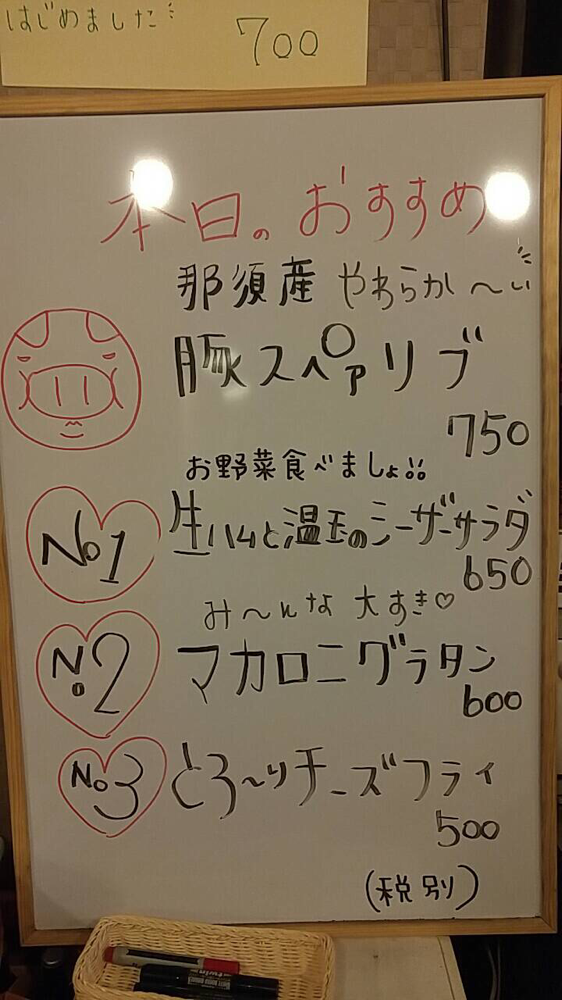 はじめました
700
本日のおすすめ
那須産 やわらか〜い
豚スペアリブ
750
お野菜食べましょ
No1 生ハムと温玉のシーザーサラダ
650
み〜んな 大すき♡
No.2 マカロニグラタン
600
No3 とろ〜りチーズフライ
500
(税別)